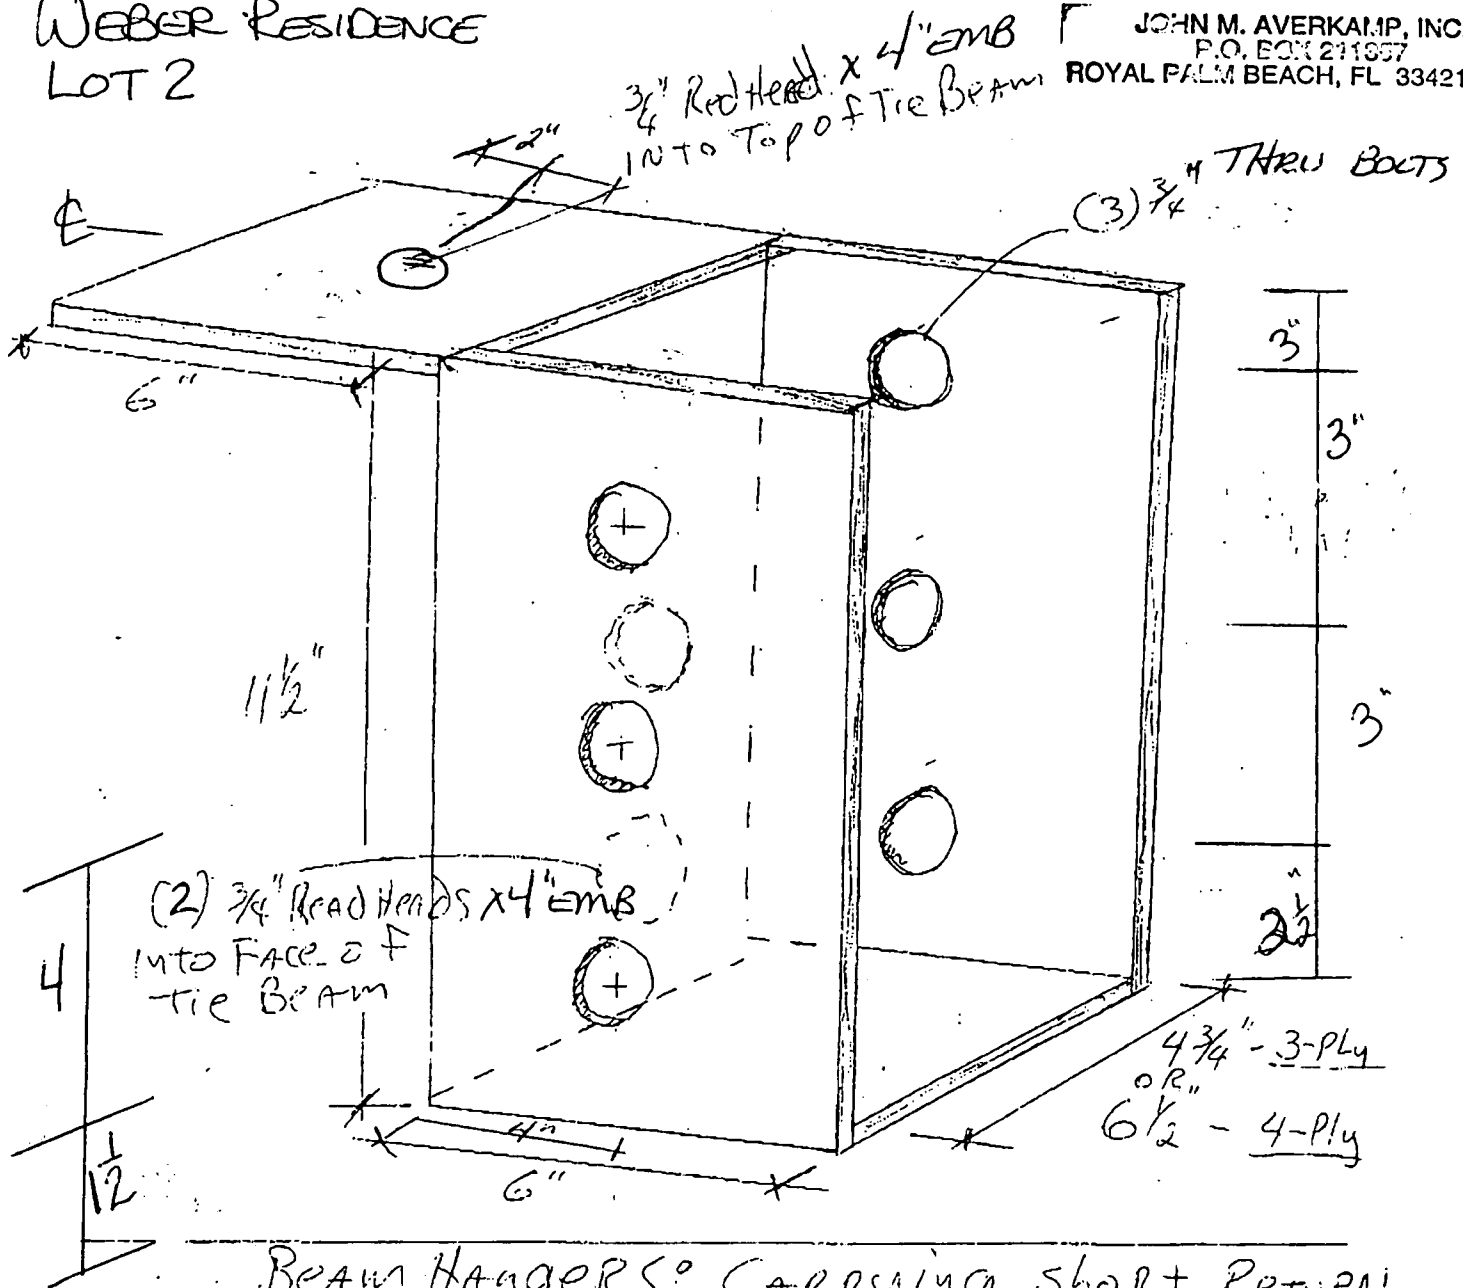 WEBER RESIDENCE
LOT 2
JOHN M. AVERKAMP, INC
P.O. BOX 211357
ROYAL PALM BEACH, FL 33421
3/4" Red Head x 4" EMB
INTO Top of Tie Beam
2"
(3) 3/4" THRU BOLTS
℄
6"
3"
3"
3"
2 1/2"
11 1/2"
(2) 3/4" Read Heads x 4" EMB
Into Face of
Tie Beam
4
1 1/2
4"
6"
4 3/4" - 3-Ply
OR
6 1/2" - 4-Ply
BEAM HANGERS: CARRYING Short